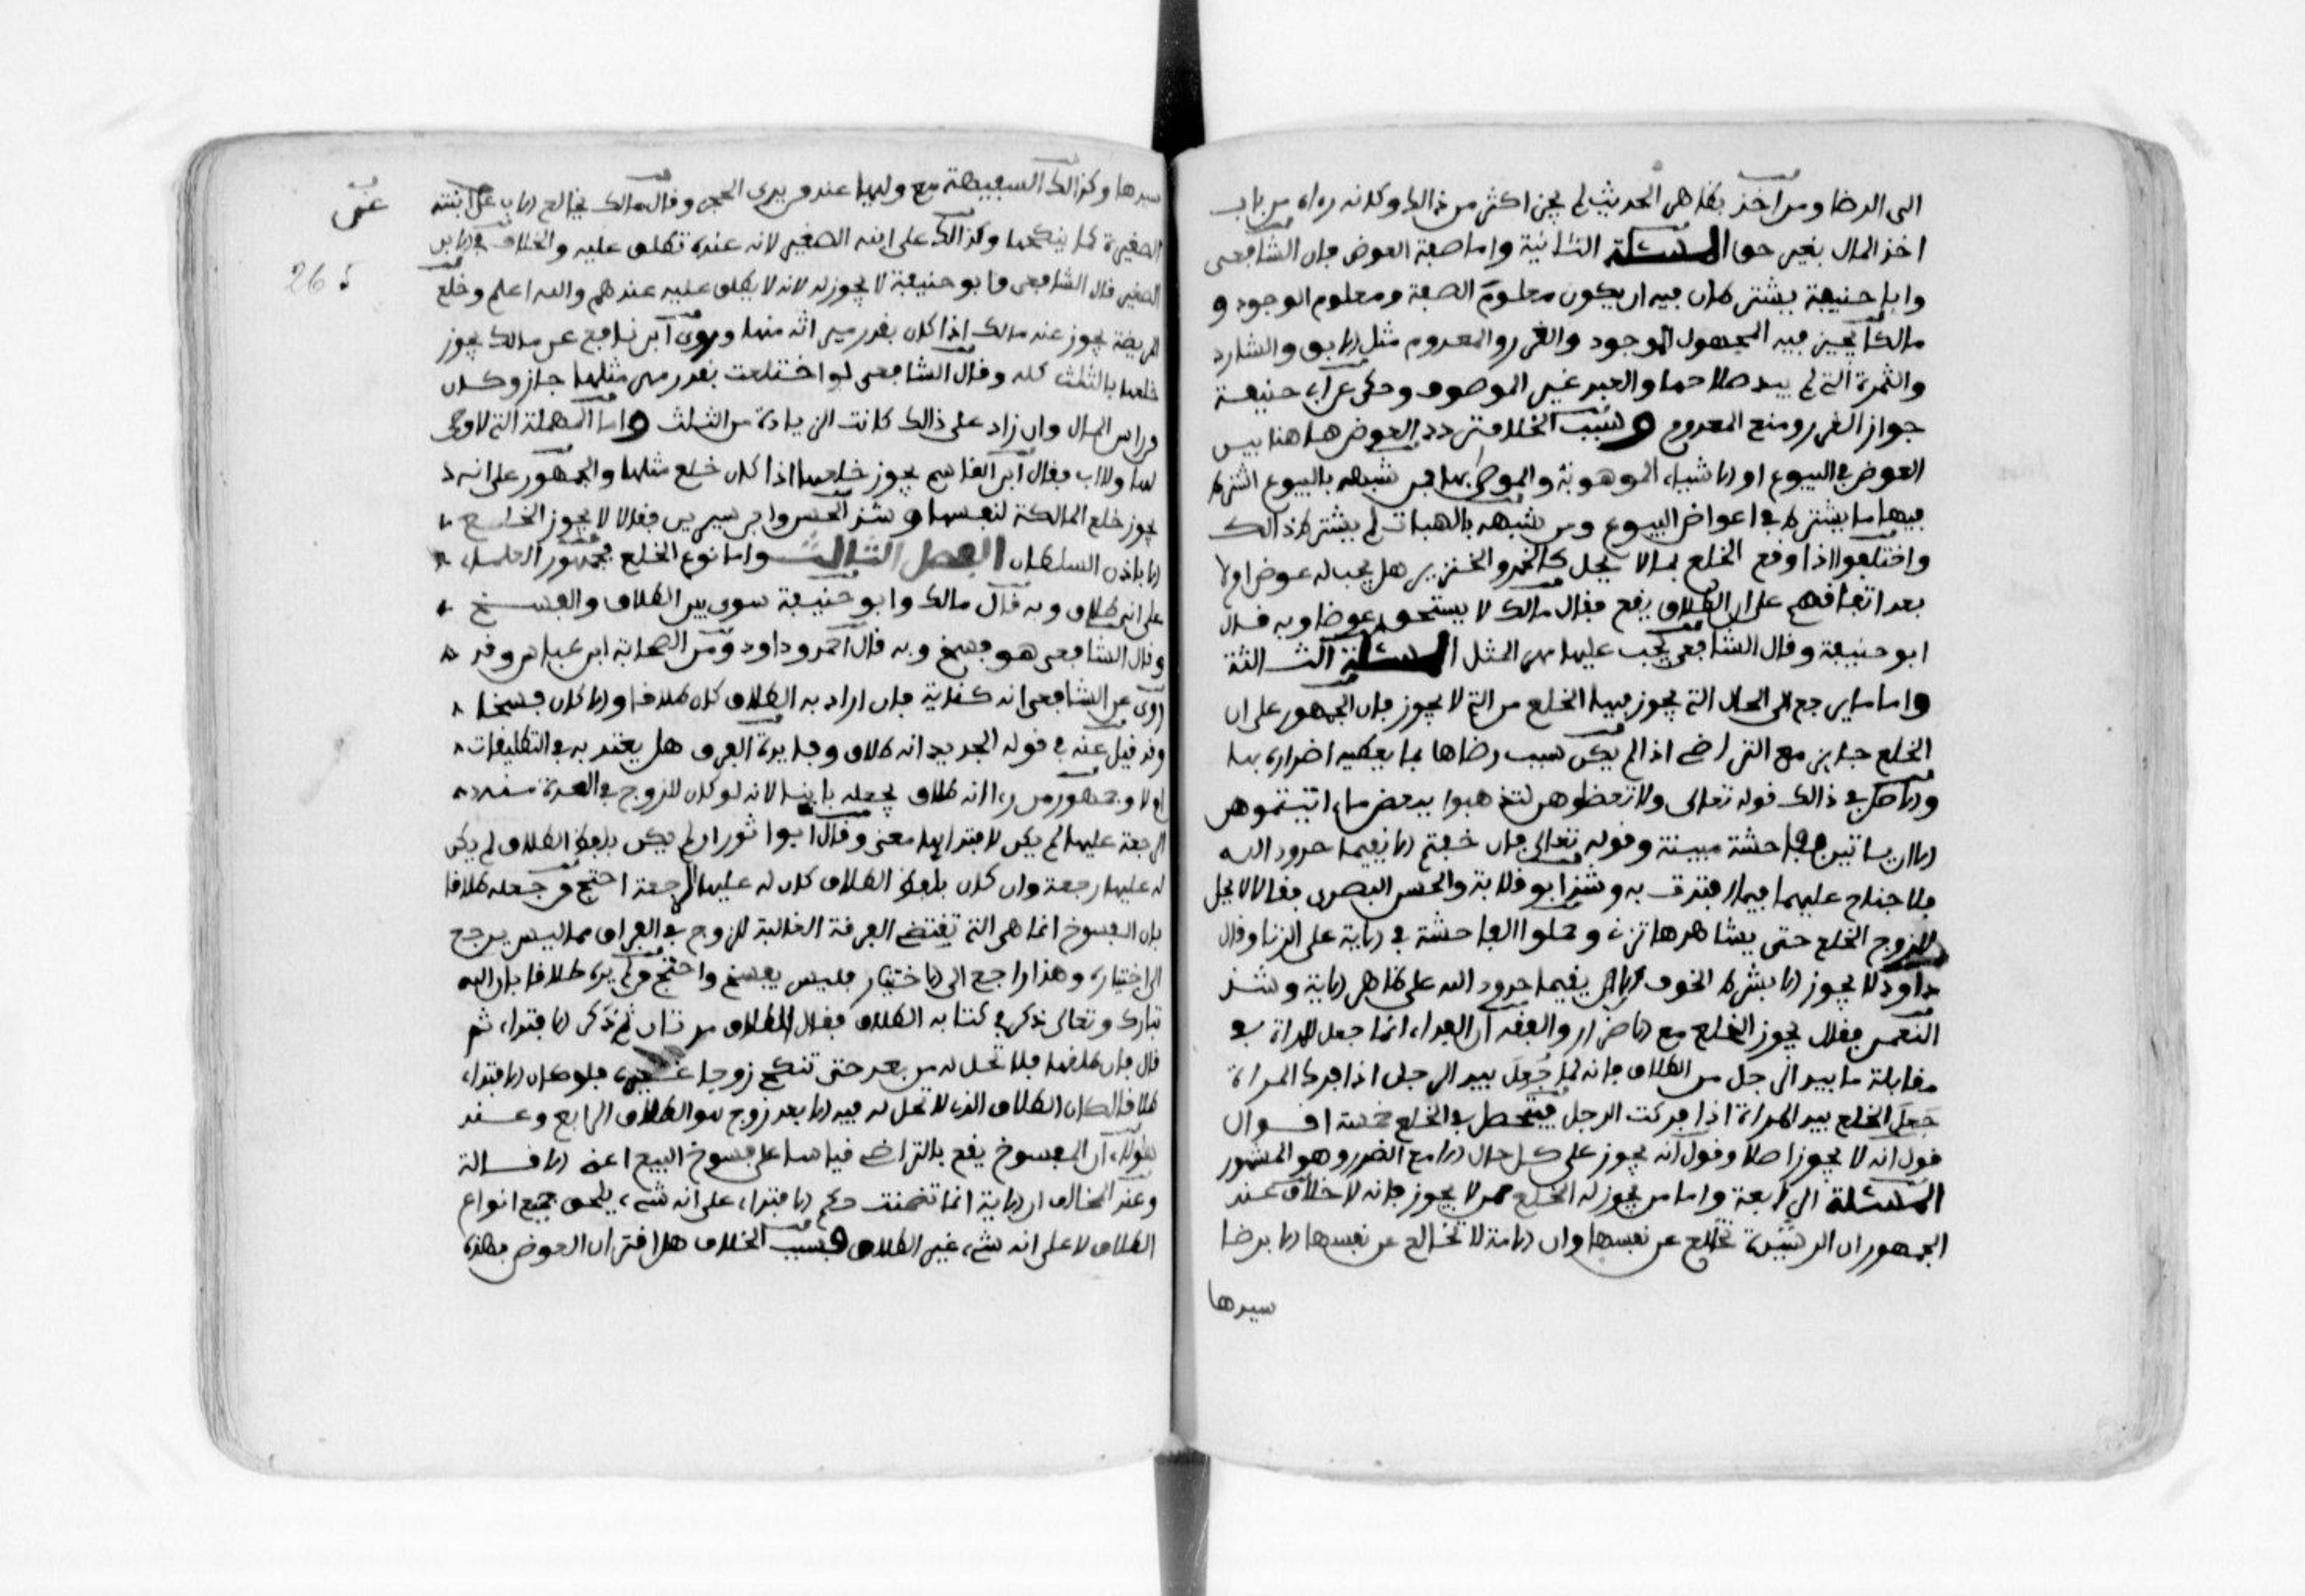 الى الرضا ومن اخذ بظاهر الحديث لم يجز اكثر من ذالك وكانه رءاه من باب
اخذ المال بغير حق المسئلة الثانية واما صفة العوض فان الشافعى
وابا حنيفة يشترطان فيه ان يكون معلوم الصفة ومعلوم الوجود و
مالكا يجيز فيه المجهول الموجود والغرر والمعدوم مثل الابق والشارد
والثمرة التى لم يبد صلاحها والعبد غير الموصوف وحكى عن ابى حنيفة
جواز الغرر ومنع المعدوم وسبب الخلاف تردد العوض هاهنا بين
العوض فى البيوع او الاشياء الموهوبة والموصى بها فمن شبهه بالبيوع اشترط
فيها ما يشترط فى اعواض البيوع ومن شبهه بالهبات لم يشترط ذالك
واختلفوا اذا وقع الخلع بما لا يحل كالخمر والخنزير هل يجب له عوض او لا
بعد اتفاقهم على ان الطلاق يقع فقال مالك لا يستحق عوضا وبه قال
ابو حنيفة وقال الشافعى يجب عليها مهر المثل المسئلة الثالثة
واما ما يرجع الى الحال التى يجوز فيها الخلع من التى لا يجوز فان الجمهور على ان
الخلع جايز مع التراضى اذا لم يكن سبب رضاها بما يعطيه اضراره بها
والاصل فى ذالك قوله تعالى ولا تعضلوهن لتذهبوا ببعض ما ءاتيتموهن
الا ان ياتين بفاحشة مبينة وقوله تعالى فان خفتم الا يقيما حدود الله
فلا جناح عليهما فيما افتدت به وشذ ابو قلابة والحسن البصرى فقالا لا يحل
للزوج الخلع حتى يشاهدها تزنى وحملوا الفاحشة فى الاية على الزنا وقال
داود لا يجوز الا بشرط الخوف الا يقيما حدود الله على ظاهر الاية وشذ
النعمن فقال يجوز الخلع مع الاضرار والفقه ان الفداء انما جعل للمراة فى
مقابلة ما بيد الرجل من الطلاق فانه لما جُعِلَ بيد الرجل اذا فرك المراة
جَعلَ الخلع بيد المراة اذا فركت الرجل فيتحصل فى الخلع خمسة اقوال
قول انه لا يجوز اصلا وقول انه يجوز على كل حال الا مع الضرر وهو المشهور
المسئلة الرابعة واما من يجوز له الخلع ممن لا يجوز فانه لا خلاف عند
الجمهور ان الرشيدة تخالع عن نفسها وان الامة لا تخالع عن نفسها الا برضا
سيدها
سيدها وكذالك السفيهة مع وليها عند من يرى الحجر وقال مالك يخالع الاب على ابنته
الصغيرة كما ينكحها وكذالك على ابنه الصغير لانه عنده تطلق عليه والخلاف فى الابن
الصغير قال الشافعى وابو حنيفة لا يجوز له لانه لا يطلق عليه عندهم والله اعلم وخلع
المريضة يجوز عند مالك اذا كان بقدر ميراثه منها وروى ابن نافع عن مالك يجوز
خلعها بالثلث كله وقال الشافعى لو اختلعت بقدر مهر مثلها جاز وكان
من راس المال وان زاد على ذالك كانت الزيادة من الثلث واما المهملة التى لا وصى
لها ولا اب فقال ابن القاسم يجوز خلعها اذا كان خلع مثلها والجمهور على انه
يجوز خلع المالكة لنفسها وشذ الحسن وابن سيرين فقالا لا يجوز الخلع
الا باذن السلطان الفصل الثالث واما نوع الخلع فجمهور العلماء
على انه طلاق وبه قال مالك وابو حنيفة سوى بين الطلاق والفسخ
وقال الشافعى هو فسخ وبه قال احمد وداود ومن الصحابة ابن عباس وقد
روى عن الشافعى انه كناية فان اراد به الطلاق كان طلاقا والا كان فسخا
وقد قيل عنه فى قوله الجديد انه طلاق وفايدة الفرق هل يعتد به فى التطليقات
ام لا وجمهور من رءا انه طلاق يجعله باينا لانه لو كان للزوج فى العدة منه
الرجعة عليها لم يكن لافتدايها معنى وقال ابوا ثور ان لم يكن بلفظ الطلاق لم يكن
له عليها رجعة وان كان بلفظ الطلاق كان له عليها الرجعة احتج من جعله طلاقا
بان الفسوخ انما هى التى تقتضى الفرقة الغالبة للزوج فى الفراق مما ليس يرجع
الى اختياره وهذا راجع الى الاختيار فليس بفسخ واحتج من لم يره طلاقا بان الله
تبارك وتعالى ذكر فى كتابه الطلاق فقال الطلاق مرتان ثم ذكر الافتداء ثم
قال فان طلقها فلا تحل له من بعد حتى تنكح زوجا غيره فلو كان الافتداء
طلاقا لكان الطلاق الذى لا تحل له فيه الا بعد زوج هو الطلاق الرابع وعند
هؤلاء ان الفسوخ يقع بالتراضى قياسا على فسوخ البيع اعنى الاقالة
وعند المخالف ان الاية انما تضمنت حكم الافتداء على انه شىء يلحق جميع انواع
الطلاق لا على انه شىء غير الطلاق وسبب الخلاف هل اقتران العوض بهذه
26